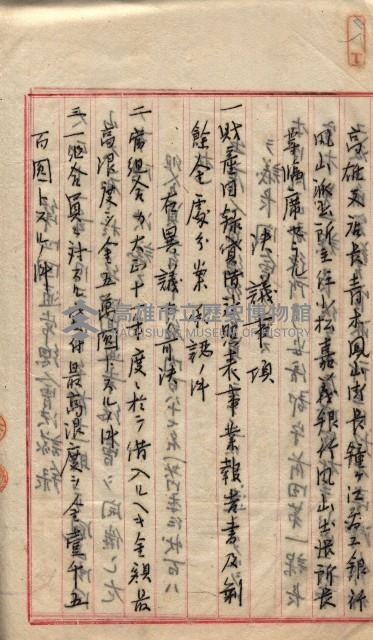 高雄支店長青木鳳山街長鐘江
鳳山派出所主任小松嘉義銀行鳳山出張所長
等臨席セラル
決議事項
一財產目錄貸借對照表事業報告書及剩
餘金處分案承認ノ件
右異議ナク可決
二當組合カ大正十一年度ニ於テ借入ルヘキ金額最
高限度ヲ金五萬圓トスルノ件
三一組合員ニ對スル貸付最高限度ヲ金壹千五
百圓トスルノ件
高雄市立歷史博物館
KAOHSIUNG MUSEUM OF HISTORY